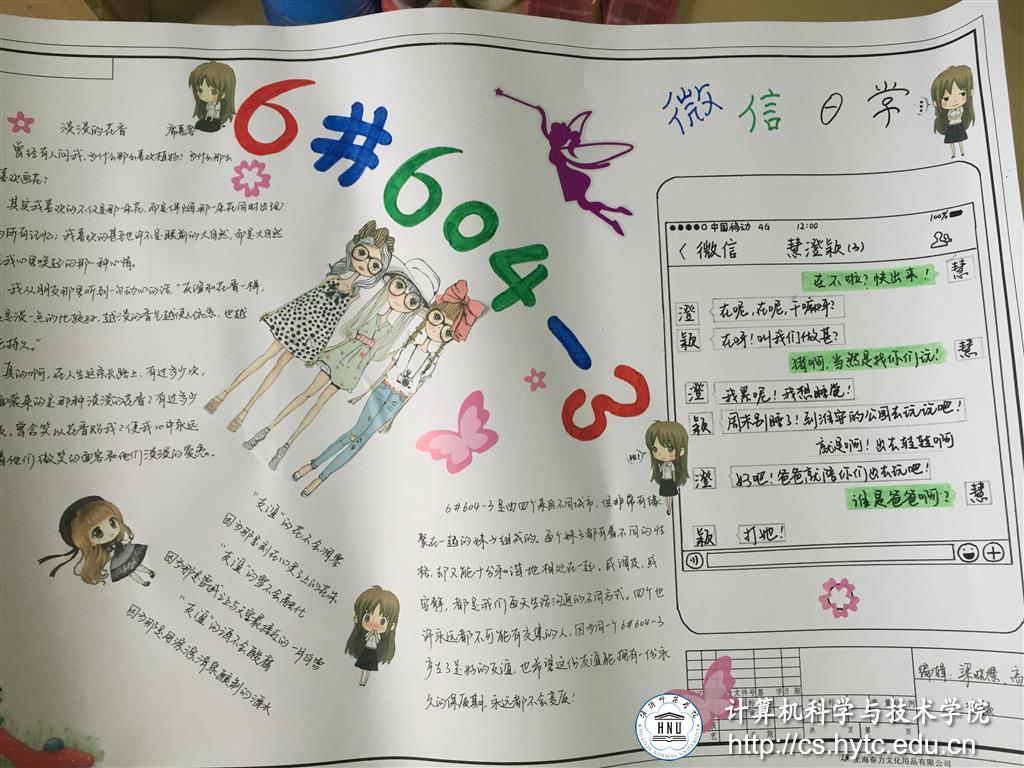 6#604-3
微信日常...
淡淡的花香 席慕容
曾经有人问我,为什么那么喜欢植物?为什么那么
喜欢画花?
其实我喜欢的不仅是那一朵花,而是伴随那一朵花同时出现
的所有记忆,我喜欢的甚至也许不是眼前的大自然,而是大自然
在我心里唤起的那一种心情。
我从朋友那里听到一句动心的话:"友谊和花香一样,
还是淡一点的比较好,越淡的香气越使人依恋,也越
能持久。"
真的啊,在人生这条长路上,有过多少次,
迎面袭来的是那种淡淡的花香?有过多少
友,曾含笑以花香贻我?使我心中永远
着他们微笑的面容和他们淡淡的爱恋。
"友谊"的花不会凋零
因为那是刻在心灵上的花朵
"友谊"的雪不会融化
因为那是雪域上与天空最接近的一片白雪
"友谊"的酒不会酸腐
因为那是用滚滚清泉酿制的酒水
6#604-3是由四个来自不同城市,但非常有缘
聚在一起的妹子组成的。每个妹子都有着不同的性
格,却又能十分和谐地相处在一起。或调皮,或
安静,都是我们每天生活沟通的不同方式。四个也
许永远都不可能有交集的人,因为同一个6#604-3
产生了美好的友谊,也希望这份友谊能拥有一份永
久的保质期,永远都不会变质!
Hi!
中国移动 4G 12:00 100%
〈微信 慧澄颖(3)
在不啦?快出来! 慧
澄 在呢,在呢,干嘛呀?
颖 在呀!叫我们做甚?
猪啊,当然是找你们玩! 慧
澄 我累呢!我想睡觉!
颖 周末别睡了!到淮安的公园去玩玩吧!
就是啊!出去转转啊
澄 好吧!爸爸就陪你们出去玩吧!
谁是爸爸啊? 慧
颖 打她!
编辑:梁晓慧 高
HNU
计算机科学与技术学院
http://cs.hytc.edu.cn
上海春力文化用品有限公司